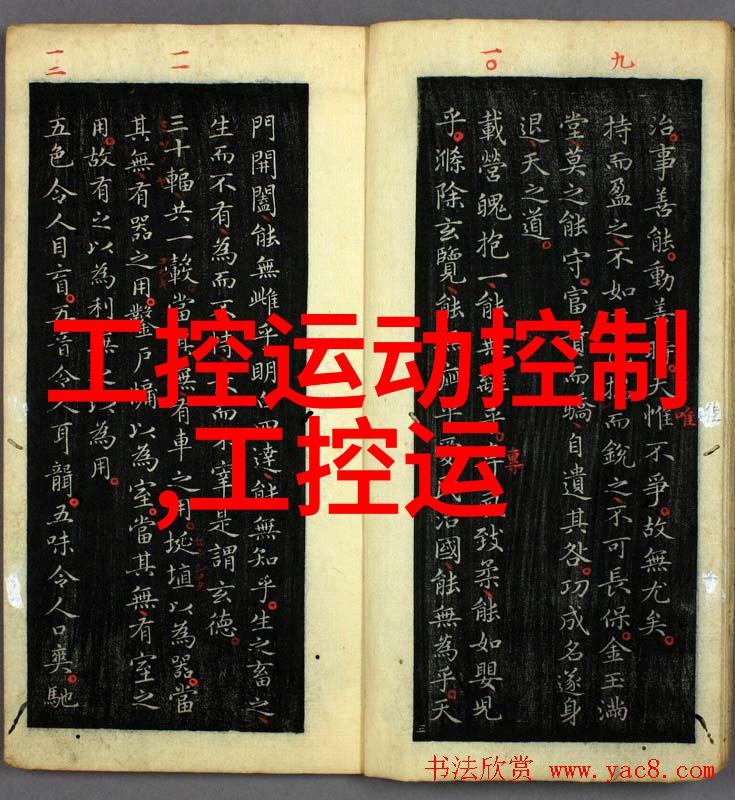 九
治事善能動善時夫惟不爭故無尤矣
持而盈之不如揣而銳之不可長保金玉滿
堂莫之能守富貴而驕自遺其咎功成名遂身
退天之道
一〇
載營魄抱一能無離乎專氣致柔能如嬰兒
乎滌除玄覽能無疵乎愛民治國能無為乎天
門開闔能無雌乎明白四達能無知乎生之畜之
生而不有為而不恃長而不宰是謂玄德
一一
三十輻共一轂當其無有車之用埏埴以為器當
其無有器之用鑿戶牖以為室當其無有室之
用故有之以為利無之以為用
一二
五色令人目盲五音令人耳聾五味令人口爽馳
唯
專
工控运动控制
,工控运
书法欣赏 www.yac8.com